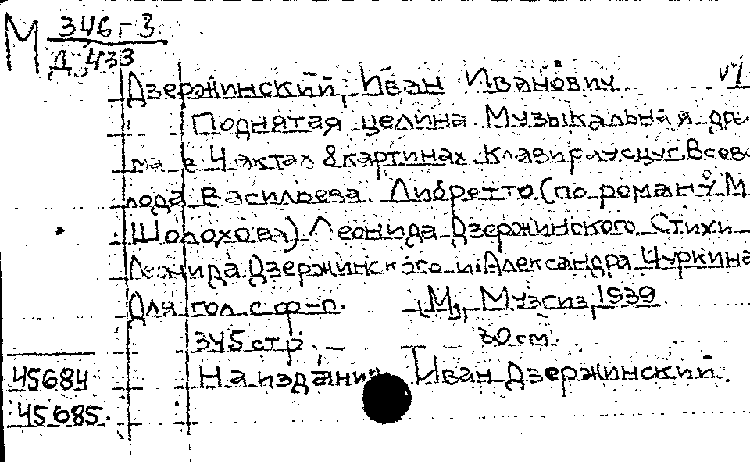 М 346-3
Д 433
Дзержинский, Иван Иванович
Поднятая целина Музыкальная дра-
ма в 4 актах 8 картинах. Клавираусцуг Всево-
лода Васильева. Либретто (по роману М.
Шолохова) Леонида Дзержинского Стихи
Леонида Дзержинского и Александра Чуркина
Для гол. с ф-п. М., Музгиз, 1939
345 стр. 30 см.
45684 На издании Иван Дзержинский.
45685.